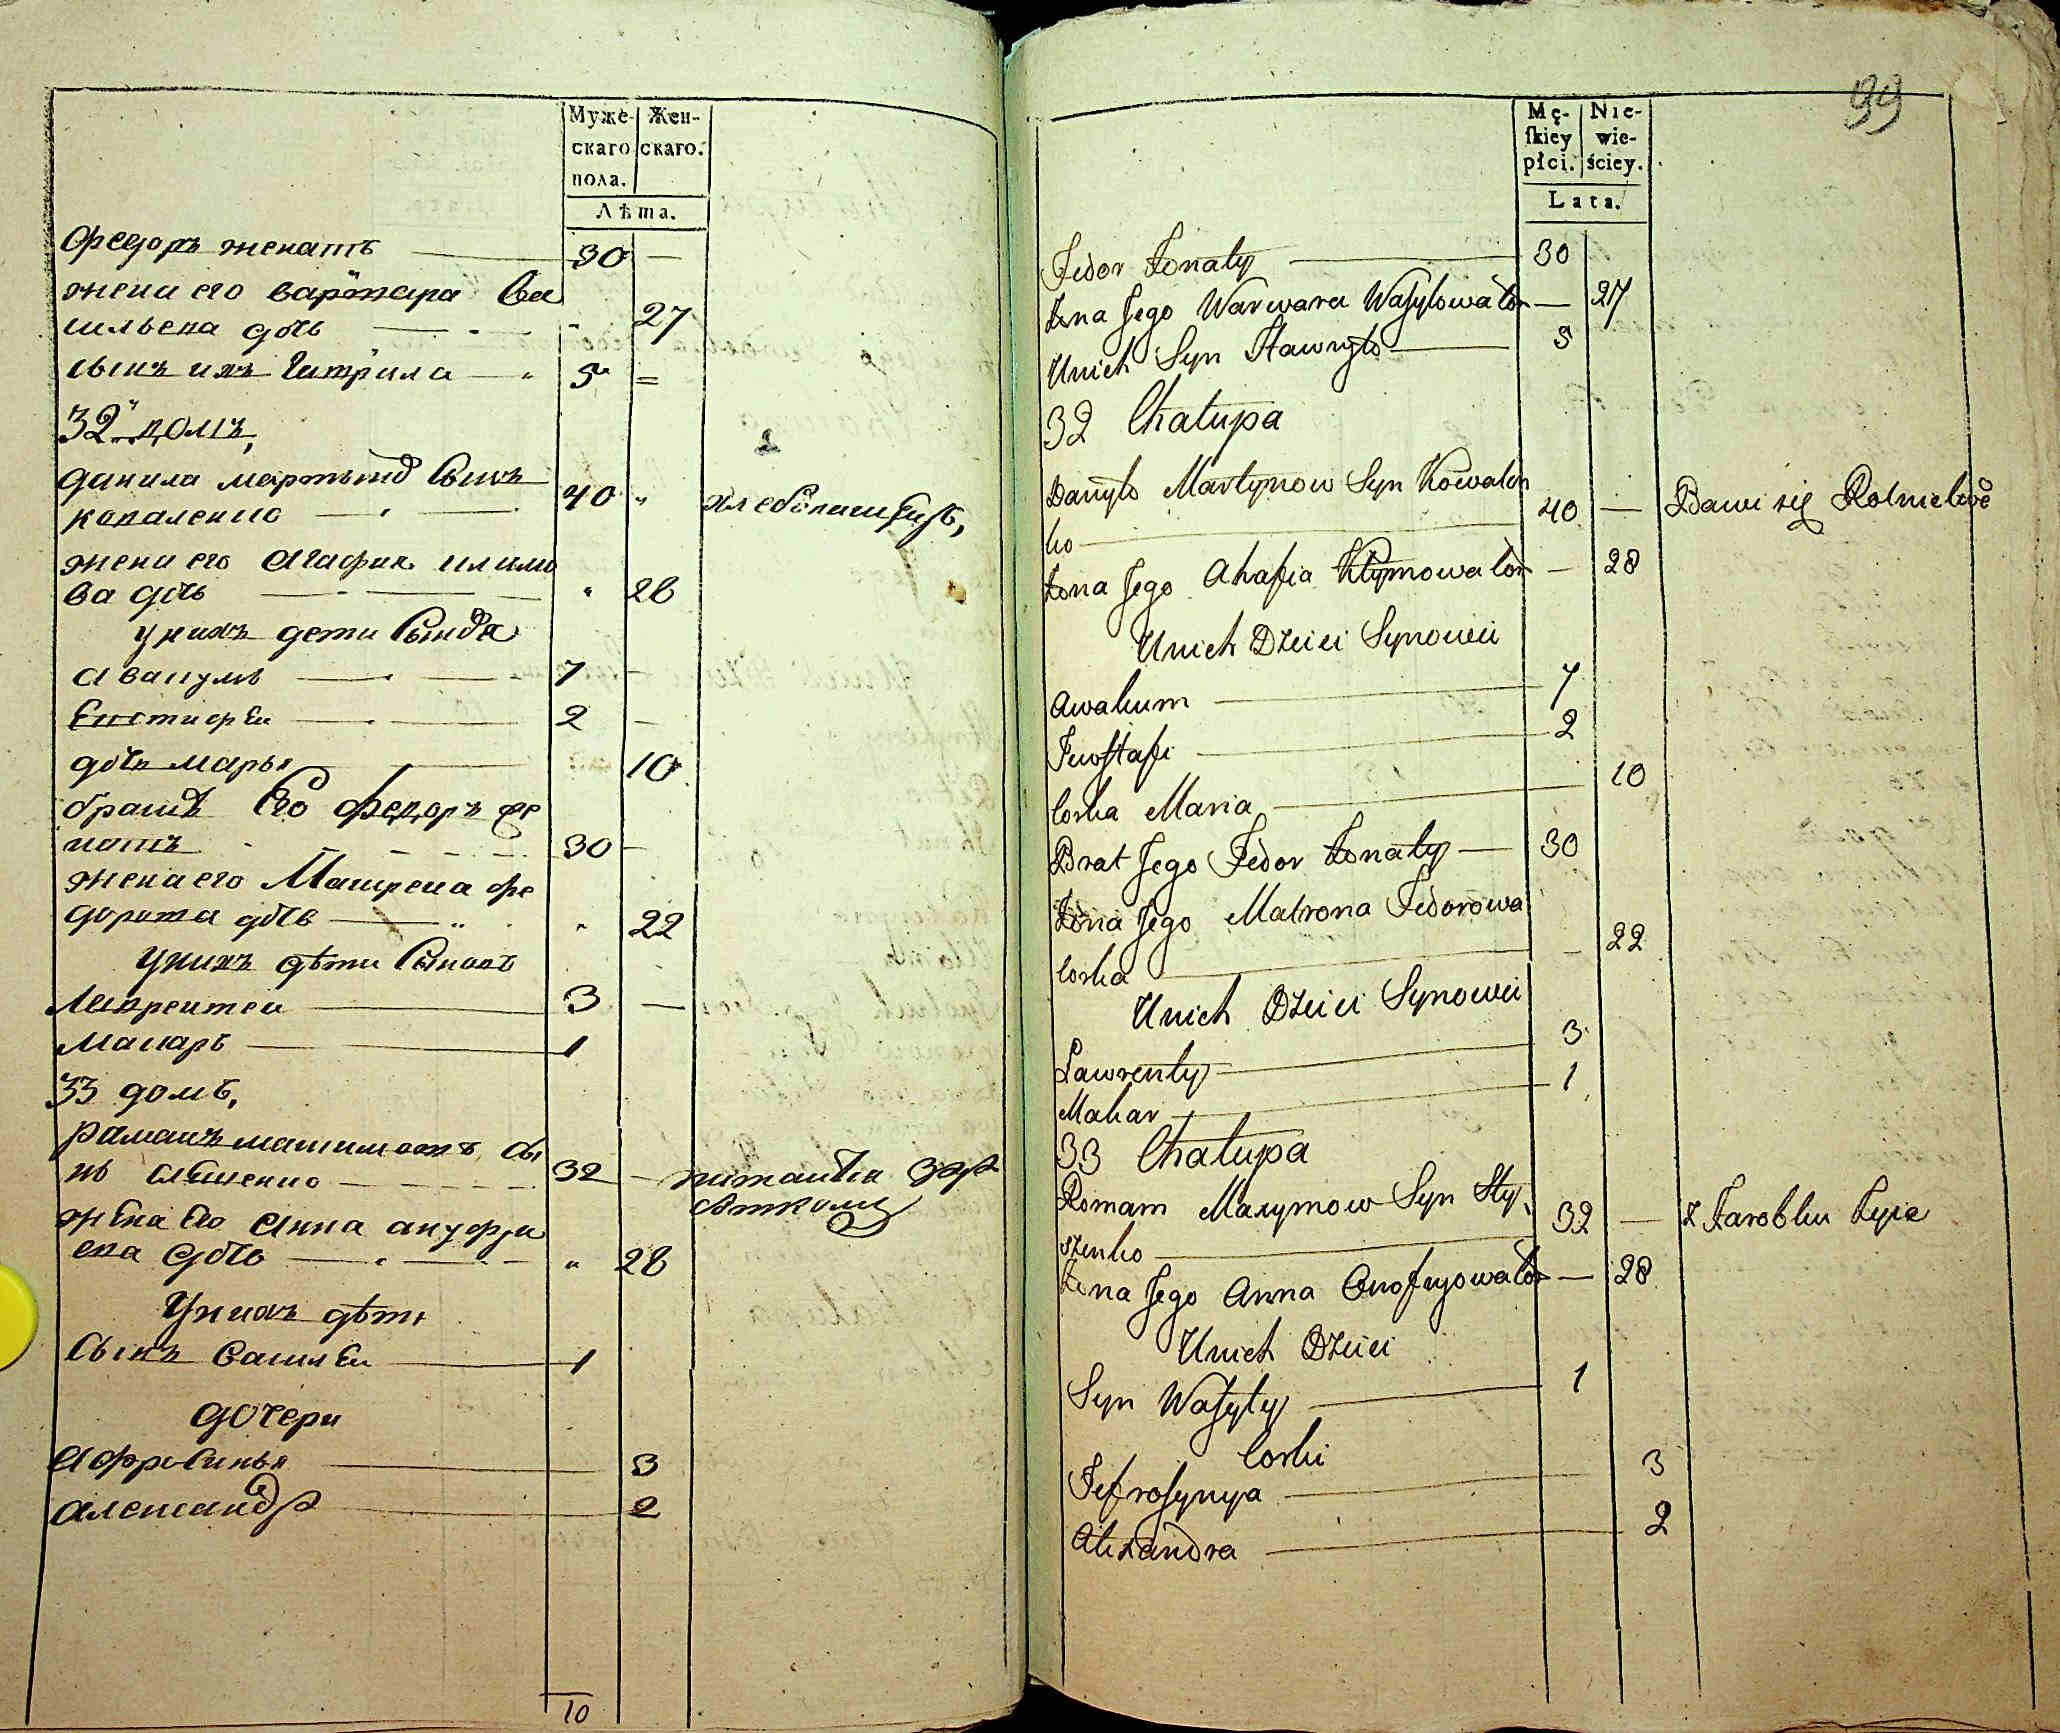 Муже-
скаго
пола.
Жен-
скаго.
Лѣта.
Федоръ женатъ 30 —
жена его варвара Ва
сильева дочь 27
сынъ ихъ Гаврила 5 =
32й домъ,
данила мартынов Сынъ
коваленко 40 хлебопашецъ,
жена его Агафия климо
ва дочь 28
у нихъ дети Сыновя
Авакумъ 7 —
Евстифей 2 —
дочь марья 10
братъ Его федоръ же
натъ 30 —
жена его Матрена фе
дорова дочь 22
у нихъ дѣти Сыновя
Лаврентей 3 —
Макаръ 1
33 домъ,
Раманъ махимовъ сы
нъ 32 —
жена Его Анна ануфри
ева дочь 28
У нихъ дѣти
Сынъ Василей 1
дочери
Афросинья 3
Александра 2
10
99
Mę-
skiey
płci.
Nie-
wie-
ściey.
Lata.
Fedor Żonaty 30
Żona Jego Warwara Wasylowa Cor — 27
Unich Syn Hawryło 5
32 Chałupa
Danyło Martynow Syn Kowalen
ko 40 — Bawi się Rolnictwē
Żona Jego Ahafia Kłymowa Cor — 28
Unich Dzieci Synowei
Awakum 7
Jewstafi 2
Corka Maria 10
Brat Jego Fedor Żonaty — 30
Żona Jego Matrona Fedorowa
Corka — 22
Unich Dzieci Synowei
Ławrenty 3
Makar 1
33 Chałupa
Romam Maxymow Syn Sty,
szenko 32 — z Zarobku Żyie
Żona Jego Anna Onofryowa Cor — 28
Unich Dzieci
Syn Wasyly 1
Corki
Jefrosynya 3
Alexandra 2